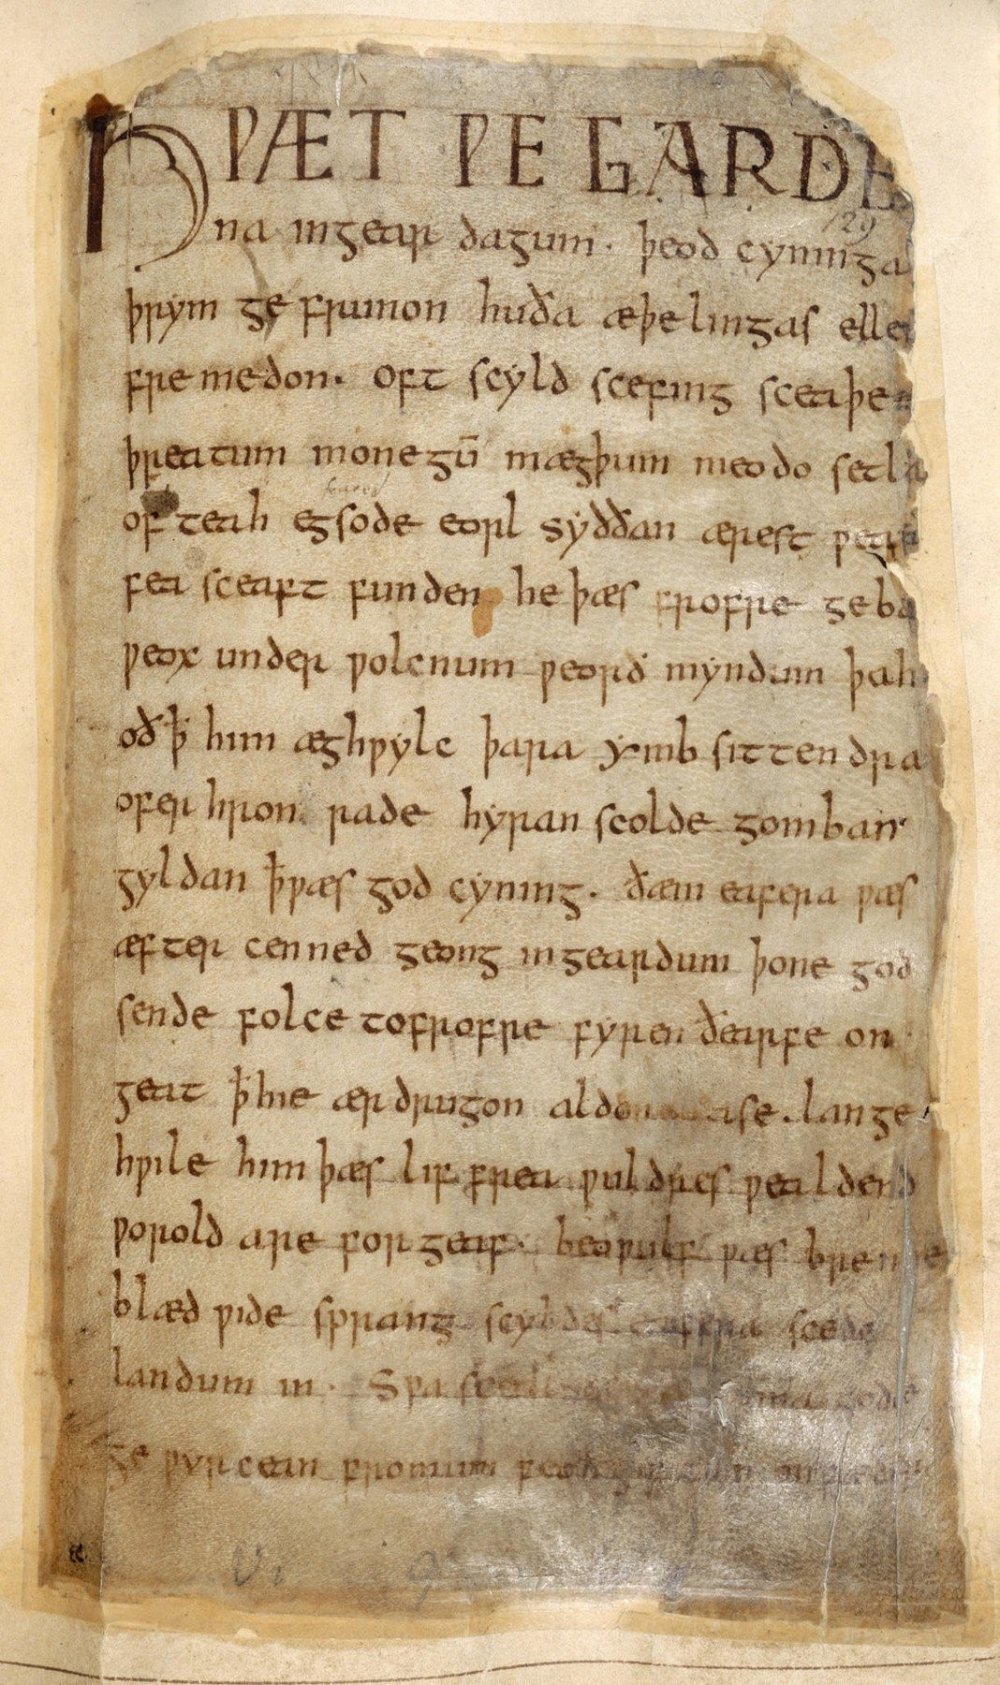 HǷÆT ǷE GARDE
na ingear dagum. þeod cyninga
þrym ge frunon huða æþelingas elle
fremedon. oft scyld scefing sceaþe
þreatum monegū mægþum meodo setla
of teah egsode eorl syððan ærest ƿear
fea sceaft funden he þæs frofre geba
ƿeox under ƿolcnum ƿeorð myndum þah
oð ꝥ him æghƿylc þara ymb sittendra
ofer hron rade hyran scolde gomban
gyldan ꝥƿæs god cyning. ðæm eafera ƿæs
æfter cenned geong ingeardum þone god
sende folce tofrofre fyren ðearfe on
geat ꝥhie ærdrugon aldor ase. lange
hƿile him þæs lif frea ƿuldres ƿealdend
ƿorold are for geaf. beoƿulf ƿæs breme
blæd ƿide sprang scyldes eafera scede
landum in. Sƿa gode
ge ƿyrcean fromum feoh